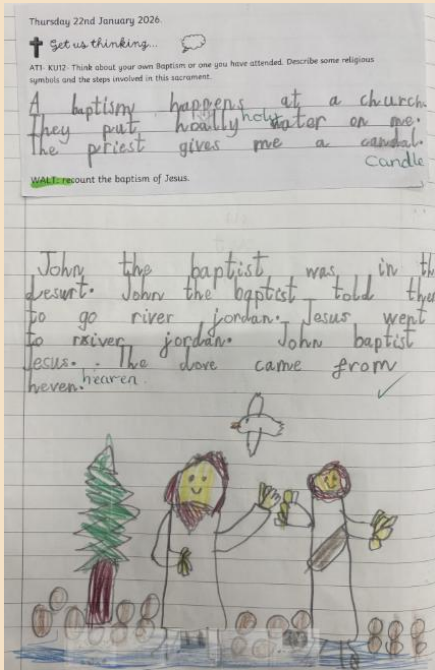 Thursday 22nd January 2026.
Get us thinking...
AT1- KU12- Think about your own Baptism or one you have attended. Describe some religious
symbols and the steps involved in this sacrament.
A baptismy happens at a church.
They put hoally holy water on me.
The priest gives me a candal.
candle
WALT: recount the baptism of Jesus.
John the baptist was in th
desurt. John the baptist told the
to go river jordan. Jesus went
to river jordan. John baptist
Jesus. The dove came from
heven. heaven.